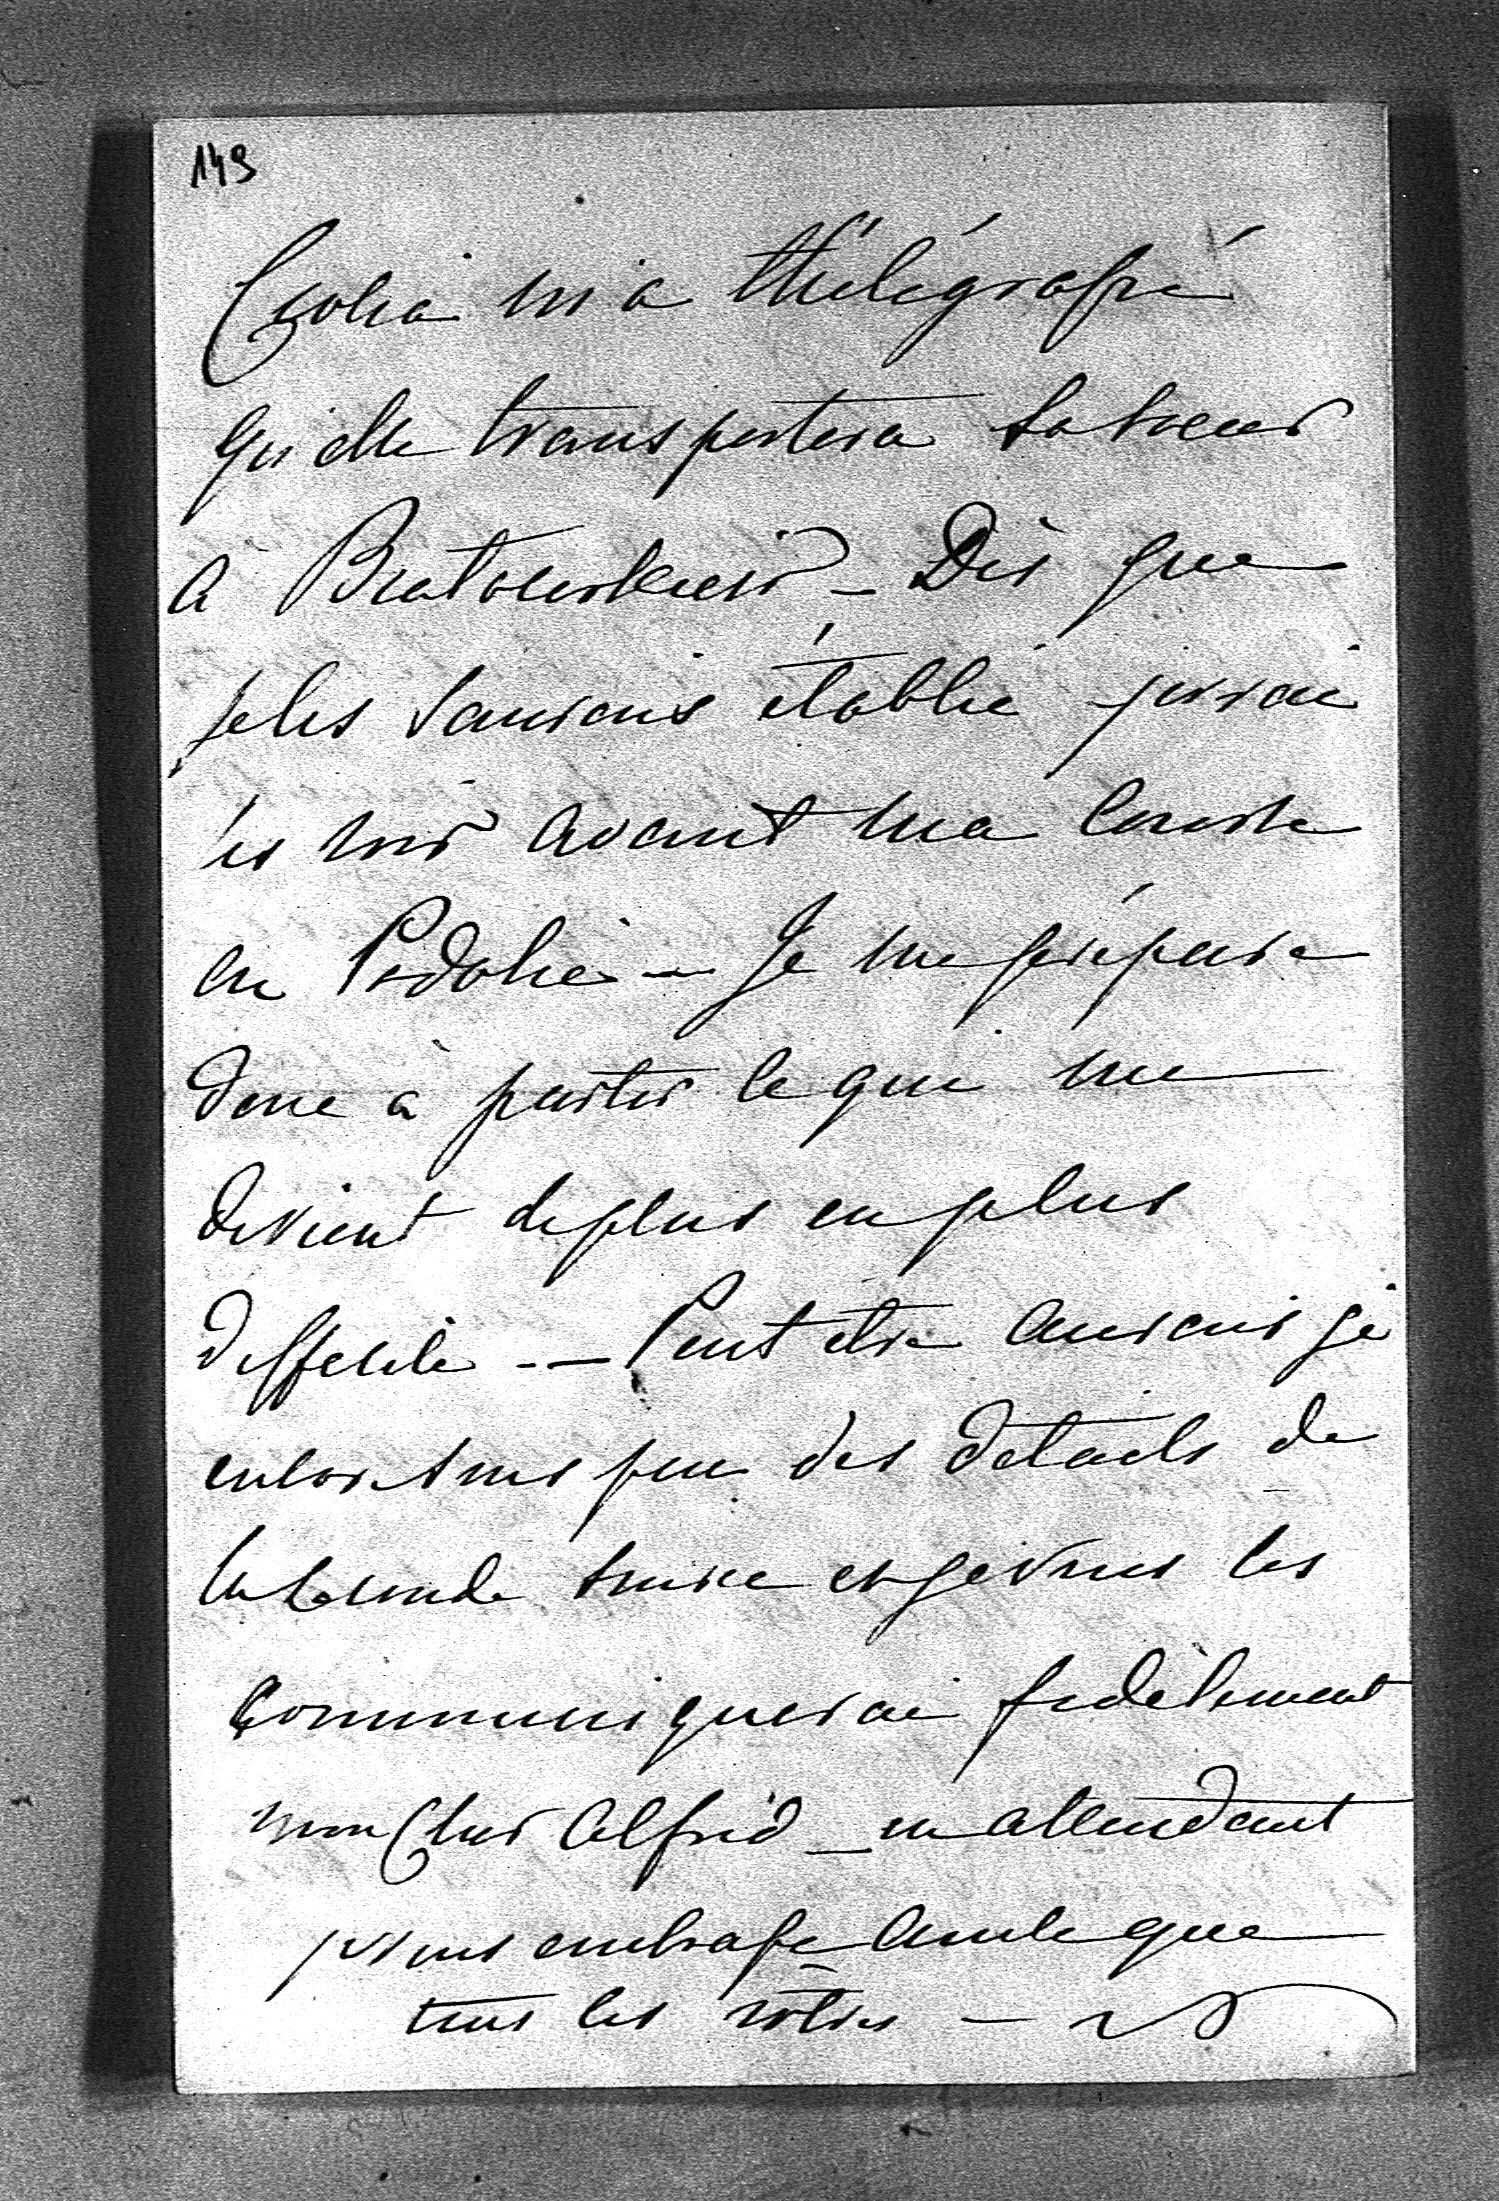 143
m'a thélégrafié
qu'elle transportera sa soeur
à Dès que
je les saurais établie j'irai
les voir avant ma course
en Podolie — Je me prépare
donc à partir ce qui me
devient de plus en plus
difficile — Peut etre aurais je
encore sous peu des détails de
la et je vous les
communiquerai fidèlement
mon Cher Alfred — en attendant
je vous embrasse ainsi que
tous les vôtres —